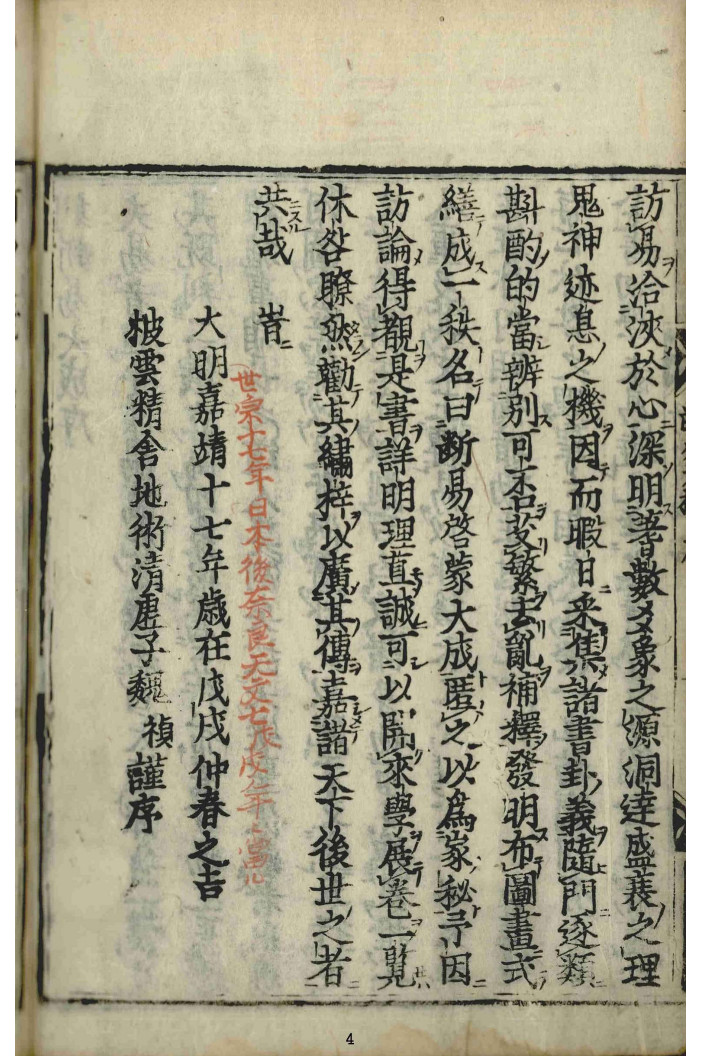 訪易洽浹於心深明蓍數爻象之源洞達盛衰之理
鬼神迹息之機因而暇日采集諸書卦義隨門逐類
斟酌的當辨別可否芟繁去亂補釋發明布圖畫式
繕成一秩名曰斷易啓蒙大成匿之以爲家秘予因
訪論得觀是書詳明理直誠可以開來學展卷一覽
休咎瞭然勸其繡梓以廣其傳嘉諎天下後世之者
共哉 旹
世宗十七年日本後奈良天文七戊戌年ニ當ル
大明嘉靖十七年歲在戊戌仲春之吉
披雲精舍地術清虛子魏 禎謹序
4